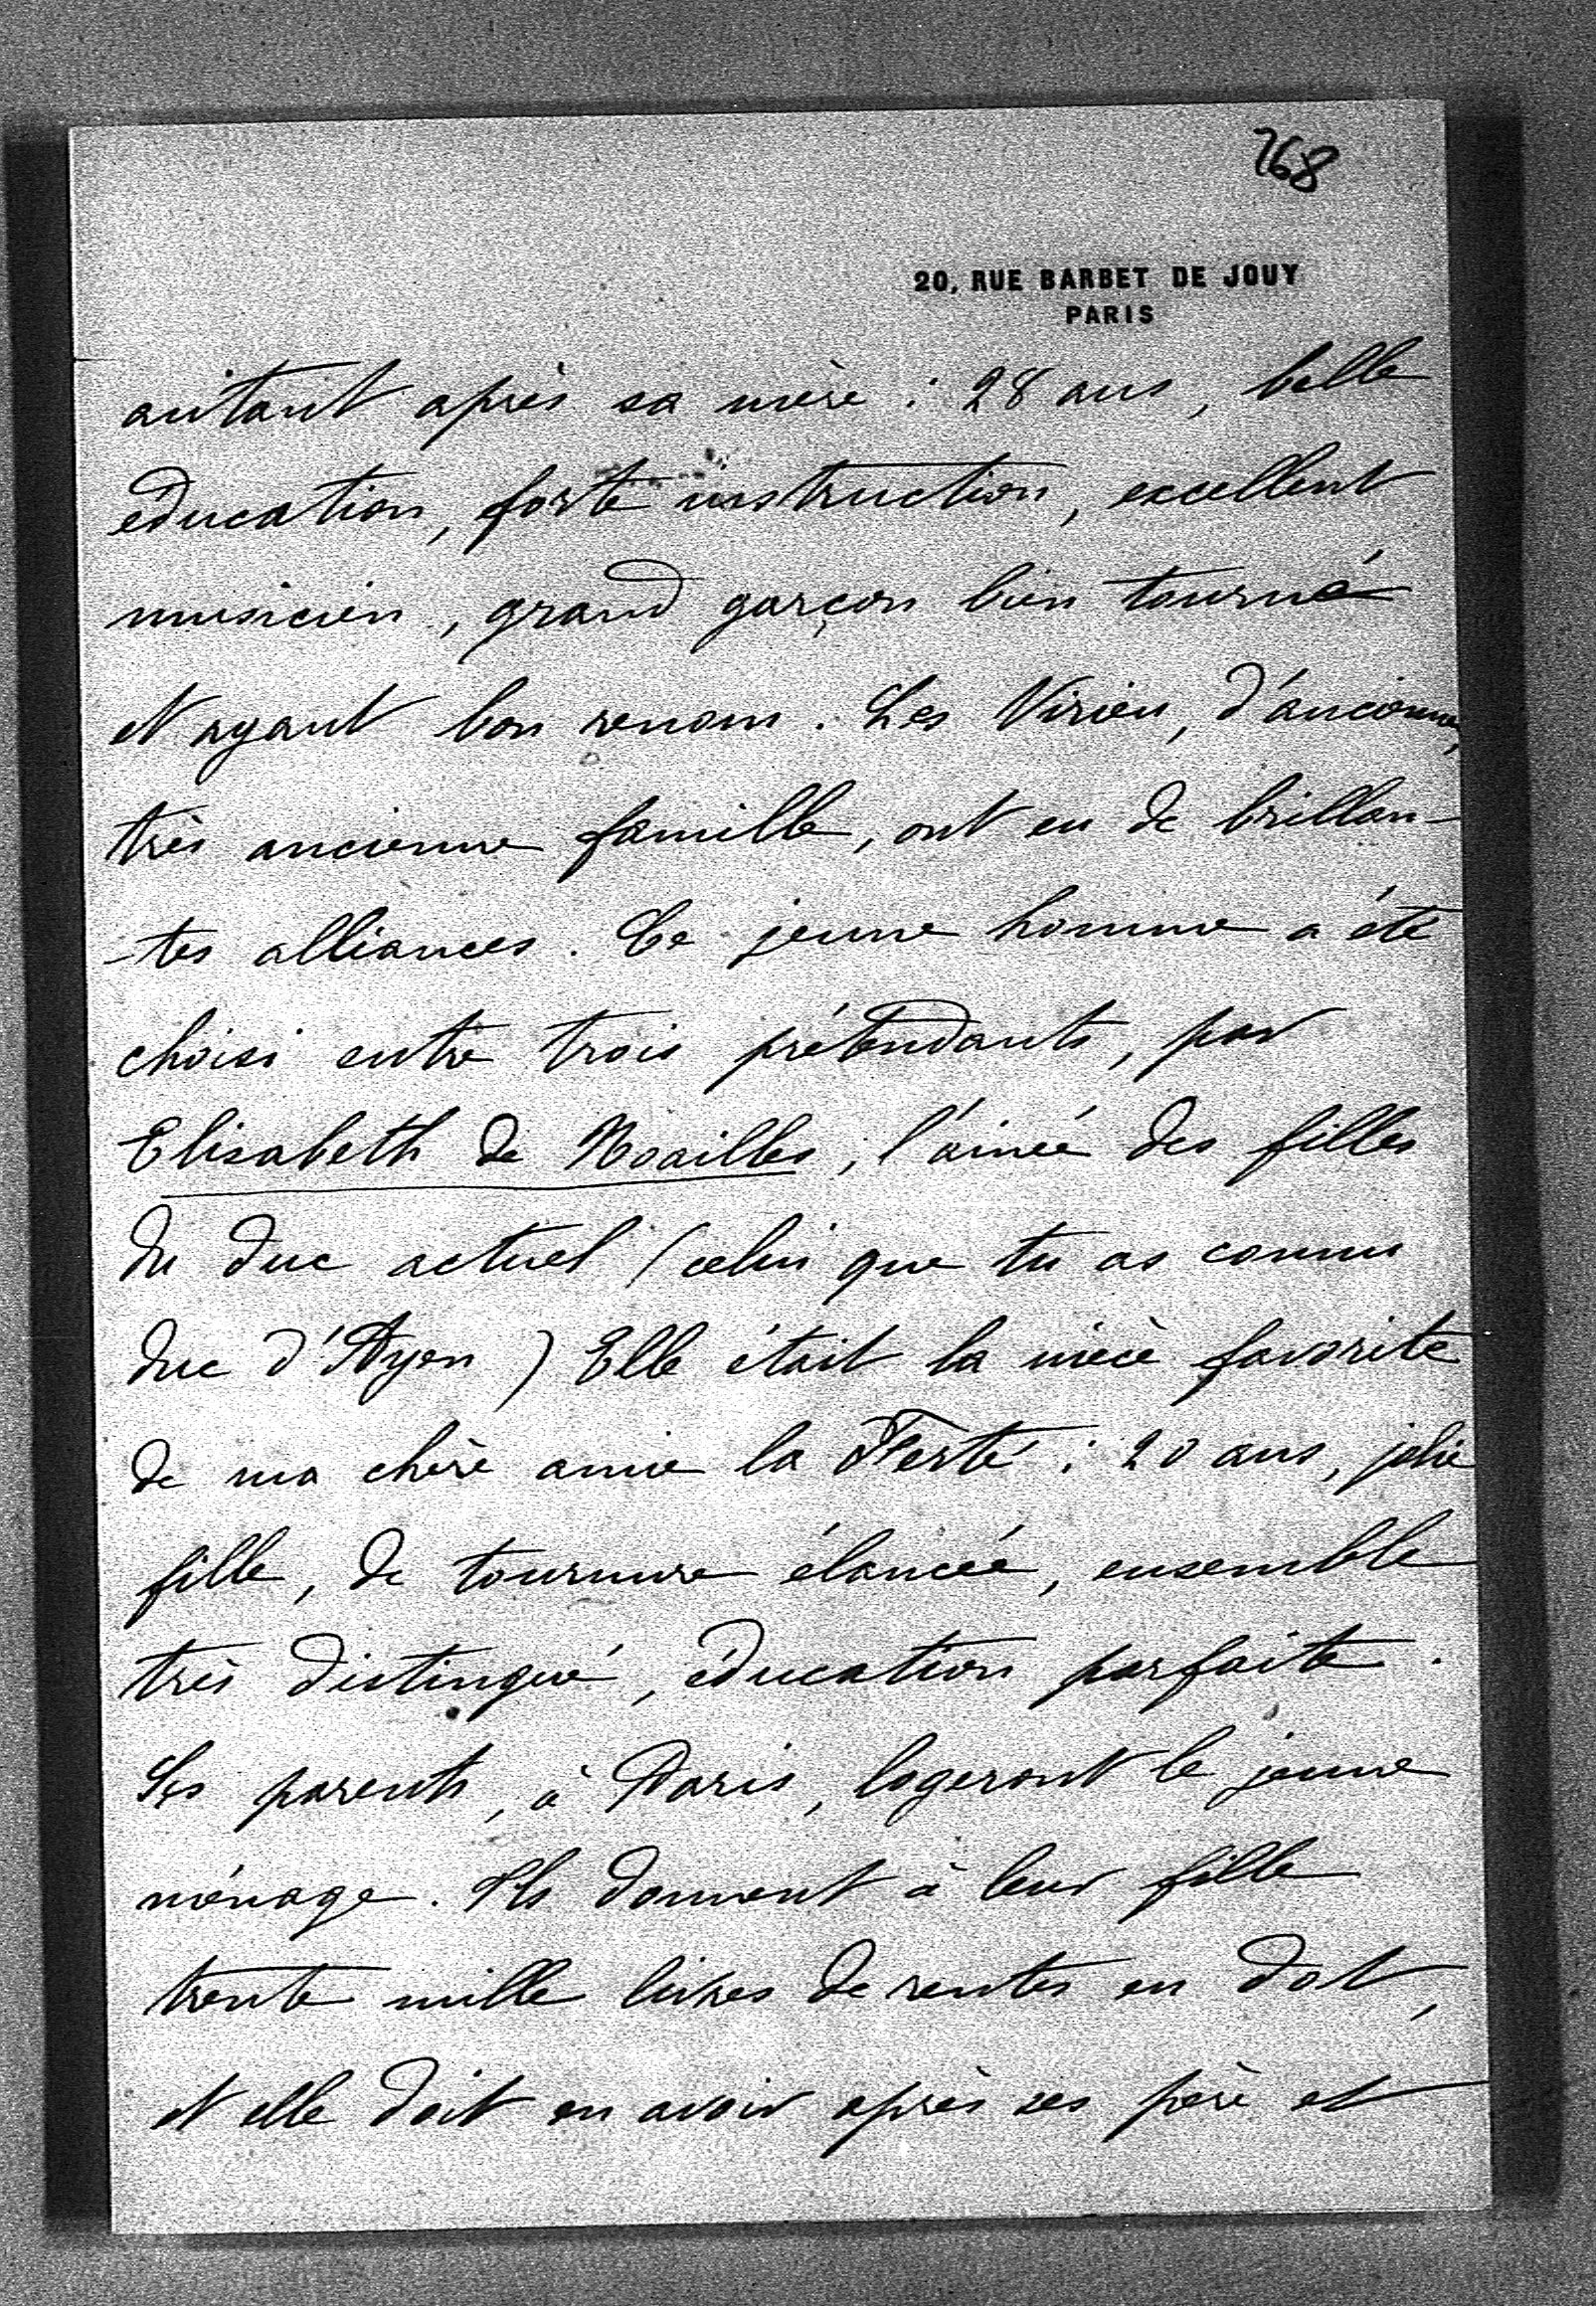 768
20, RUE BARBET DE JOUY
PARIS
autant après sa mère : 28 ans, belle
éducation, forte instruction, excellent
musicien, grand garçon bien tourné
et ayant bon renom. Les Virieu, d'ancienne,
très ancienne famille, ont eu de brillan-
-tes alliances. Ce jeune homme a été
choisi entre trois prétendants, par
Elisabeth de Noailles, l'aînée des filles
du duc actuel (celui que tu as connu
duc d'Ayen) Elle était la nièce favorite
de ma chère amie la Ferté : 20 ans, jolie
fille, de tournure élancée, ensemble
très distingué, éducation parfaite.
Ses parents, à Paris, logeront le jeune
ménage. Ils donnent à leur fille
trente mille livres de rentes en dot,
et elle doit en avoir après ses père et